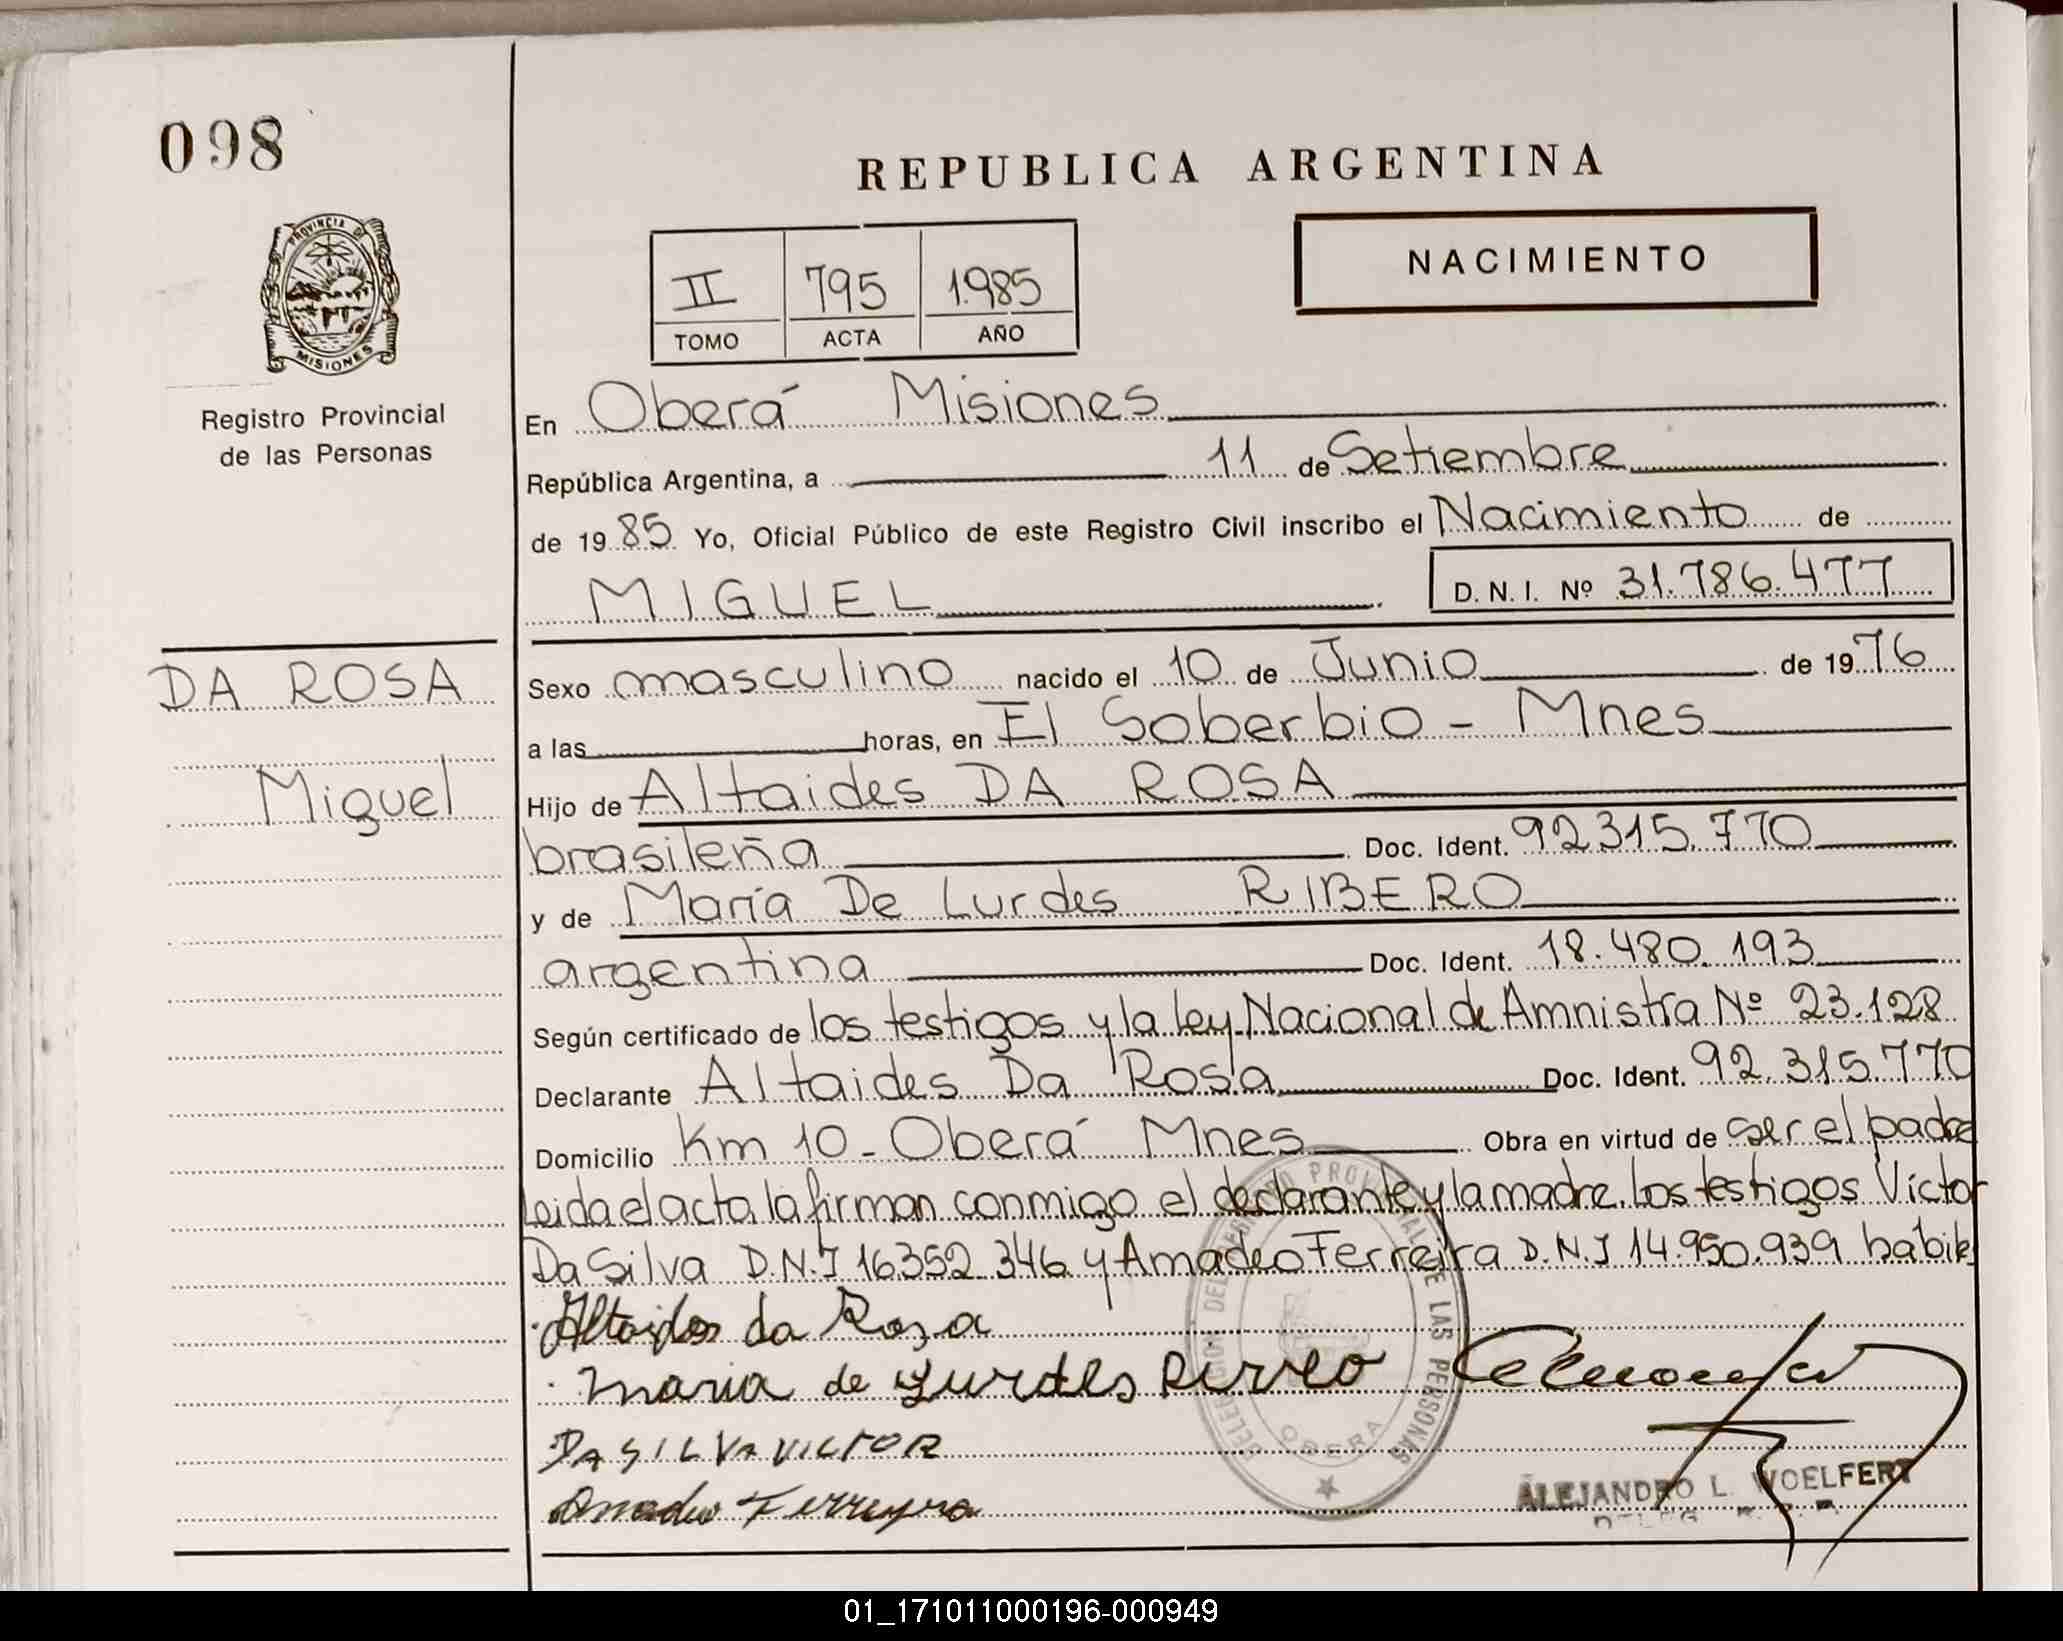 098
REPUBLICA ARGENTINA
PROVINCIA DE
MISIONES
Registro Provincial
de las Personas
II 795 1.985
TOMO ACTA AÑO
NACIMIENTO
En Oberá Misiones
República Argentina, a 11 de Setiembre
de 1985 Yo, Oficial Público de este Registro Civil inscribo el Nacimiento de
MIGUEL D. N. I. Nº 31.786.477
DA ROSA
Miguel
Sexo masculino nacido el 10 de Junio de 1976
a las horas, en El Soberbio - Mnes
Hijo de Altaides DA ROSA
brasileña Doc. Ident. 92.315.770
y de María De Lurdes RIBERO
argentina Doc. Ident. 18.480.193
Según certificado de los testigos y la ley Nacional de Amnistía Nº 23.128
Declarante Altaides Da Rosa Doc. Ident. 92.315.770
Domicilio Km 10 - Oberá Mnes Obra en virtud de ser el padre
Leida el acta la firman conmigo el declarante y la madre. Los testigos Víctor
Da Silva D.N.I 16352.346 y Amadeo Ferreira D.N.I 14.950.939 habiles
Altaides da Rosa
maria de Lurdes
DA SILVA VICTOR
Amadeo Ferreyra
DELEGACION DEL REGISTRO PROVINCIAL DE LAS PERSONAS
OBERA
ALEJANDRO L. WOELFERT
01_171011000196-000949